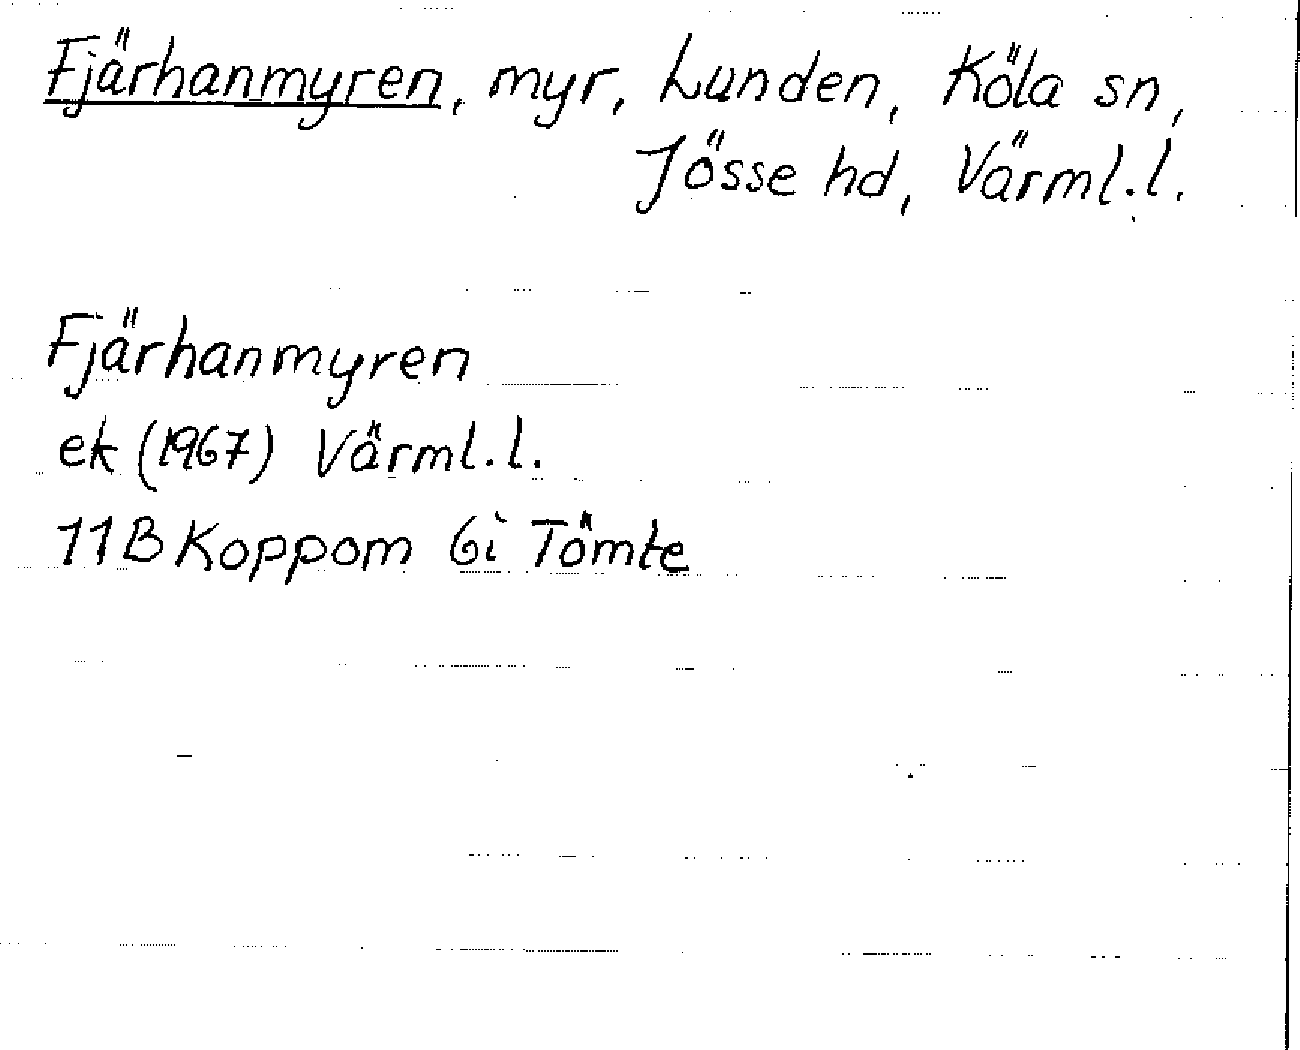 Fjärhanmyren, myr, Lunden, Köla sn,
Jösse hd, Värml.l.
Fjärhanmyren
ek (1967) Värml.l.
11B Koppom 6i Tömte